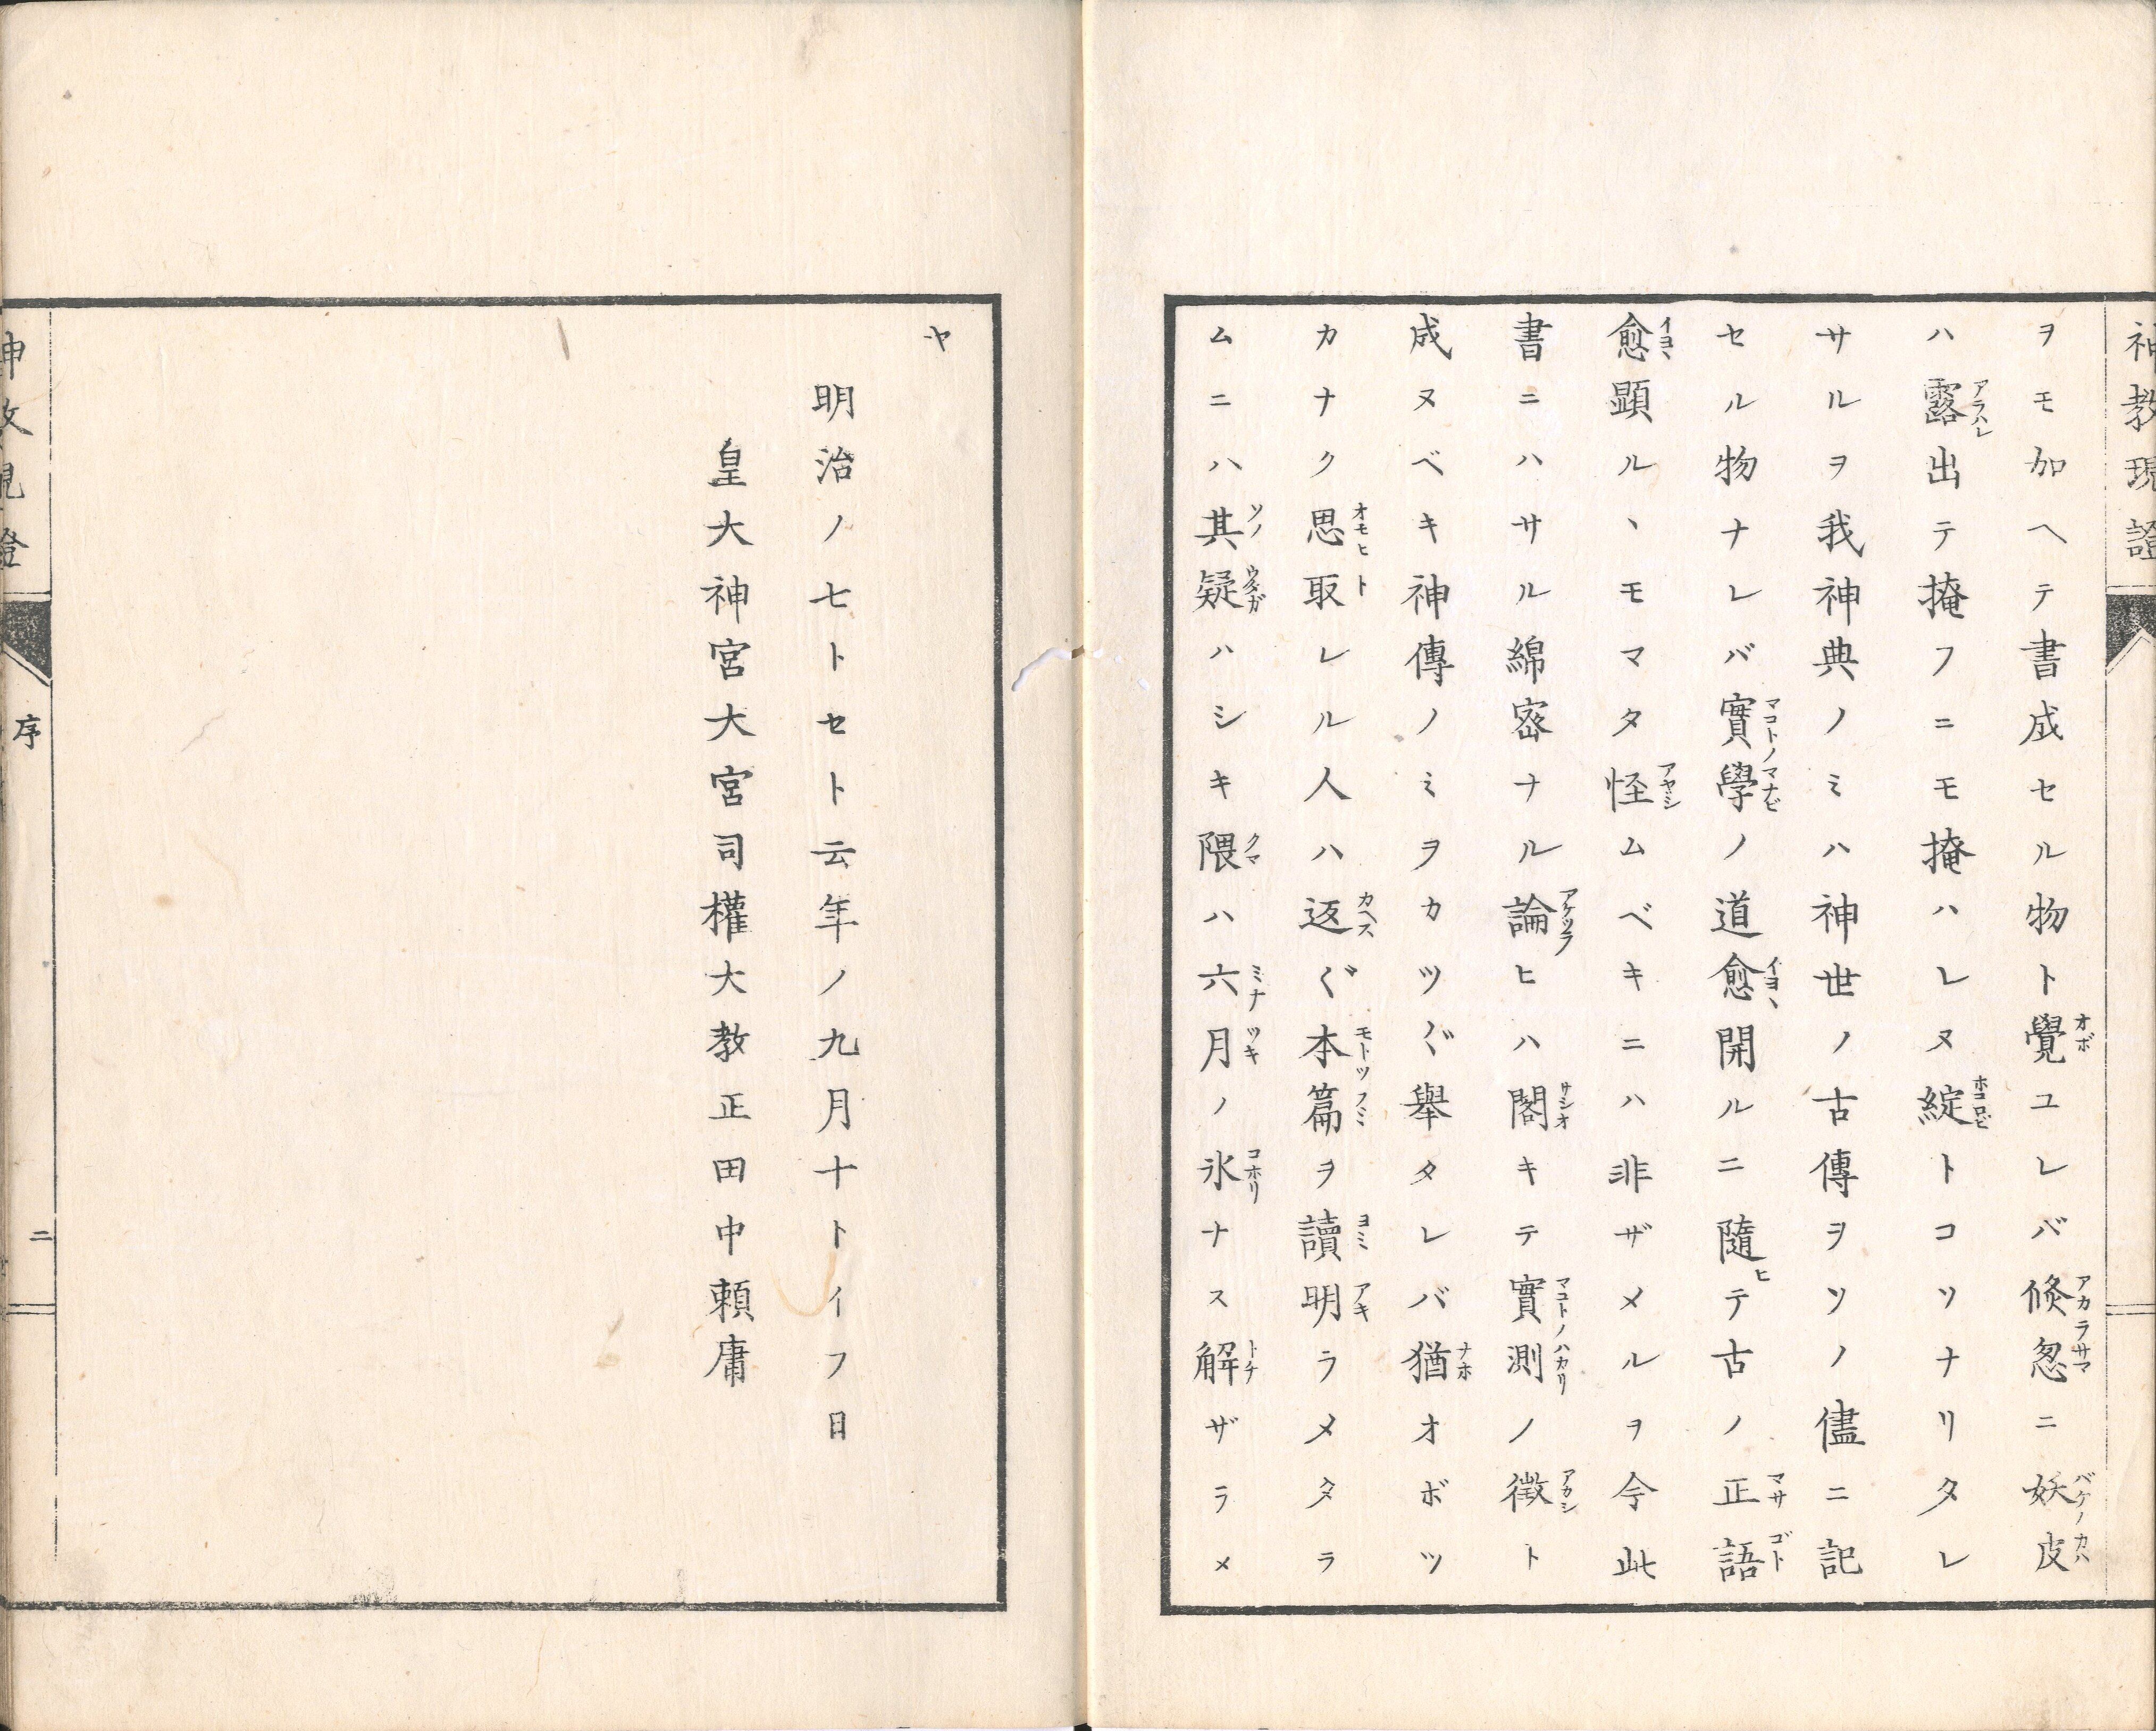 神教現證
ヲモ加ヘテ書成セル物ト覺ユレバ倏忽ニ妖皮
ハ露出テ掩フニモ掩ハレヌ綻トコソナリタレ
サルヲ我神典ノミハ神世ノ古傳ヲソノ儘ニ記
セル物ナレバ實學ノ道愈開ルニ隨ヒテ古ノ正語
愈顕ルヽモマタ怪ムベキニハ非ザメルヲ今此
書ニハサル綿密ナル論ヒハ閣キテ實測ノ徴ト
成ヌベキ神傳ノミヲカツ〴〵舉タレバ猶オボツ
カナク思取レル人ハ返〴〵本篇ヲ讀明ラメタラ
ムニハ其疑ハシキ隈ハ六月ノ氷ナス解ザラメ
ヤ
明治ノ七トセト云年ノ九月十トイフ日
皇大神宮大宮司權大教正田中頼庸
神教現證
序
二